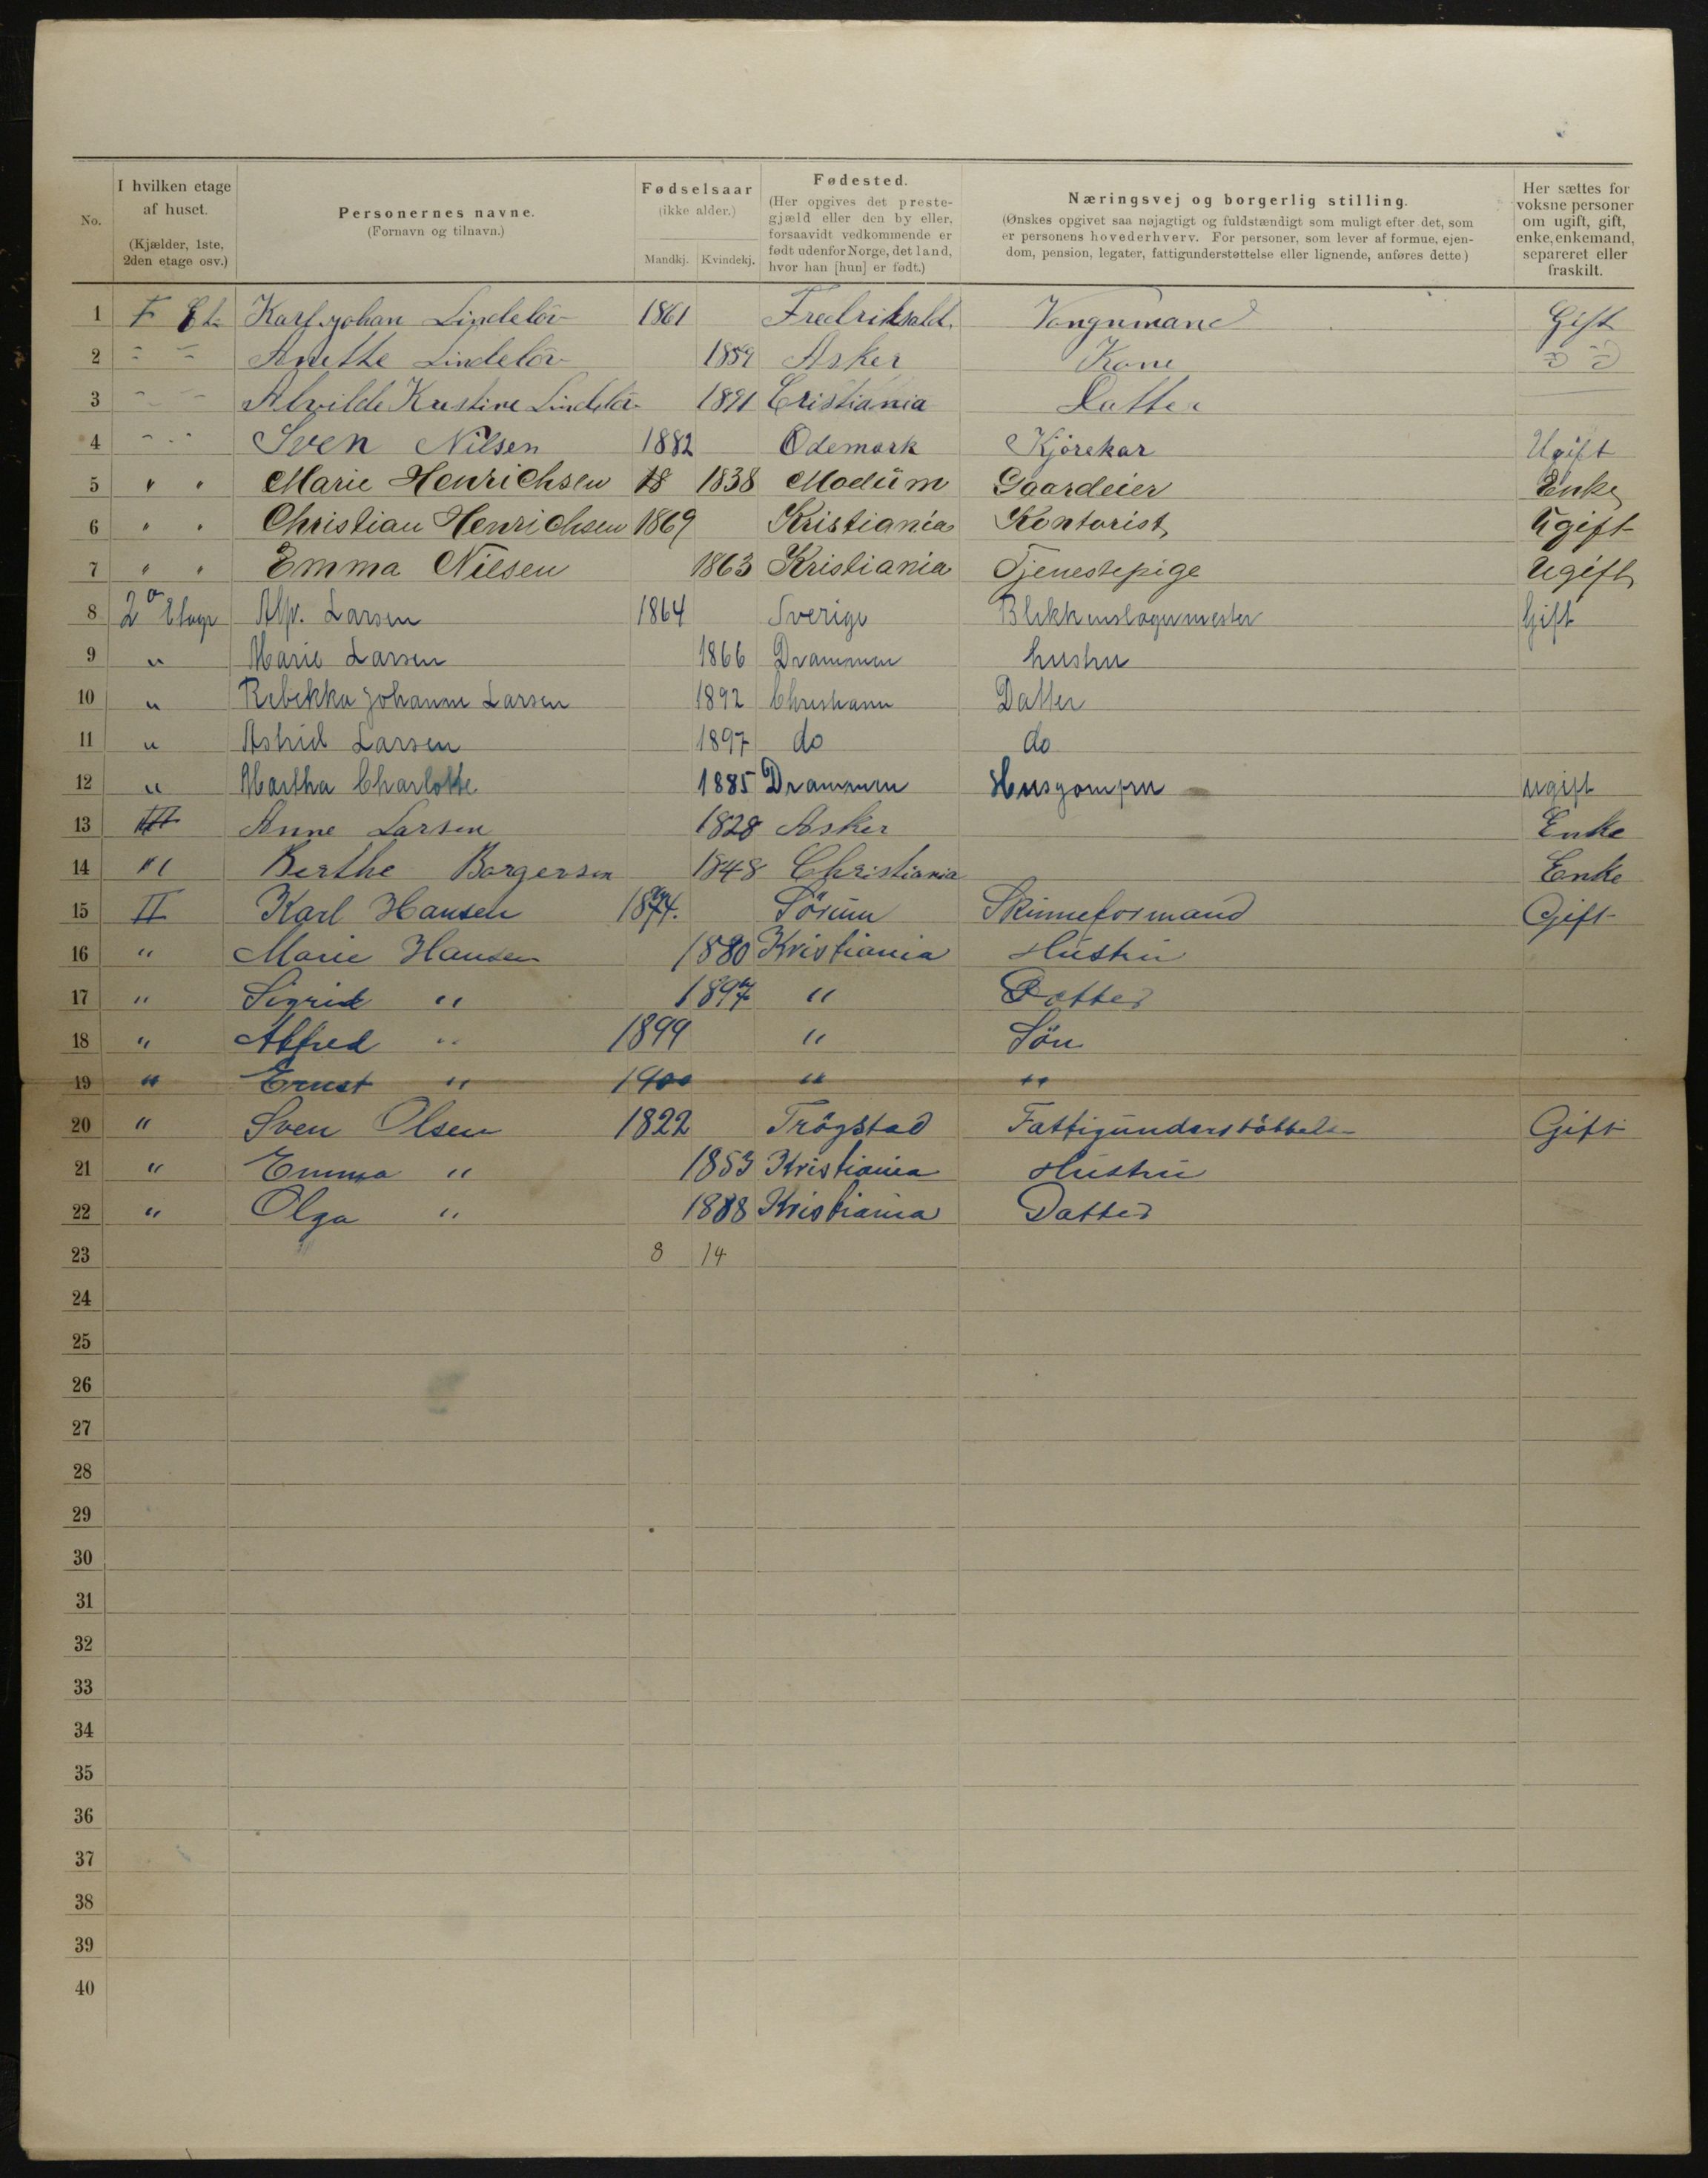 No.
I hvilken etage af huset.
(Kjælder, 1ste, 2den etage osv.)
Personernes navne.
(Fornavn og tilnavn.)
Fødselsaar
(ikke alder.)
Mandkj. Kvindekj.
Fødested.
(Her opgives det prestegjæld eller den by eller, forsaavidt vedkommende er født udenfor Norge, det land, hvor han [hun] er født.)
Næringsvej og borgerlig stilling.
(Ønskes opgivet saa nøjagtigt og fuldstændigt som muligt efter det, som er personens hovederhverv. For personer, som lever af formue, ejendom, pension, legater, fattigunderstøttelse eller lignende, anføres dette)
Her sættes for voksne personer om ugift, gift, enke, enkemand, separeret eller fraskilt.
1 I Et. Karl johan Lindelöv 1861 Fredriksald. Vongnmand Gift
2 " " Anette Lindelöv 1859 Asker Kone " "
3 " " Alvilde Kristine Lindelöv 1891 Cristiania Datter
4 " " Sven Nilsen 1882 Ödemark Kjörekar Ugift
5 " " Marie Henrichsen 18 1838 Modum Gaardeier Enke
6 " " Christian Henrichsen 1869 Kristiania Kontorist Ugift
7 " " Emma Nilsen 1863 Kristiania Tjenestepige Ugift
8 2 Etage Alf. Larsen 1864 Sverige Blikkenslagermester Gift
9 " Marie Larsen 1866 Drammen hustru
10 " Rebekka Johanne Larsen 1892 Christiania Datter
11 " Astrid Larsen 1897 do do
12 " Martha Charlotte 1885 Drammen Husjomfru ugift
13 III Anne Larsen 1828 Asker Enke
14 " Berthe Borgersen 1848 Christiania Enke
15 II Karl Hansen 1874. Sörum Skinneformand Gift
16 " Marie Hansen 1880 Kristiania Hustru
17 " Sigrid " 1897 " Datter
18 " Alfred " 1899 " Sön
19 " Ernst " 1900 " "
20 " Sven Olsen 1822 Trögstad Fattigunderstöttelse Gift
21 " Emma " 1853 Kristiania Hustru
22 " Olga " 1888 Kristiania Datter
23 8 14
24
25
26
27
28
29
30
31
32
33
34
35
36
37
38
39
40